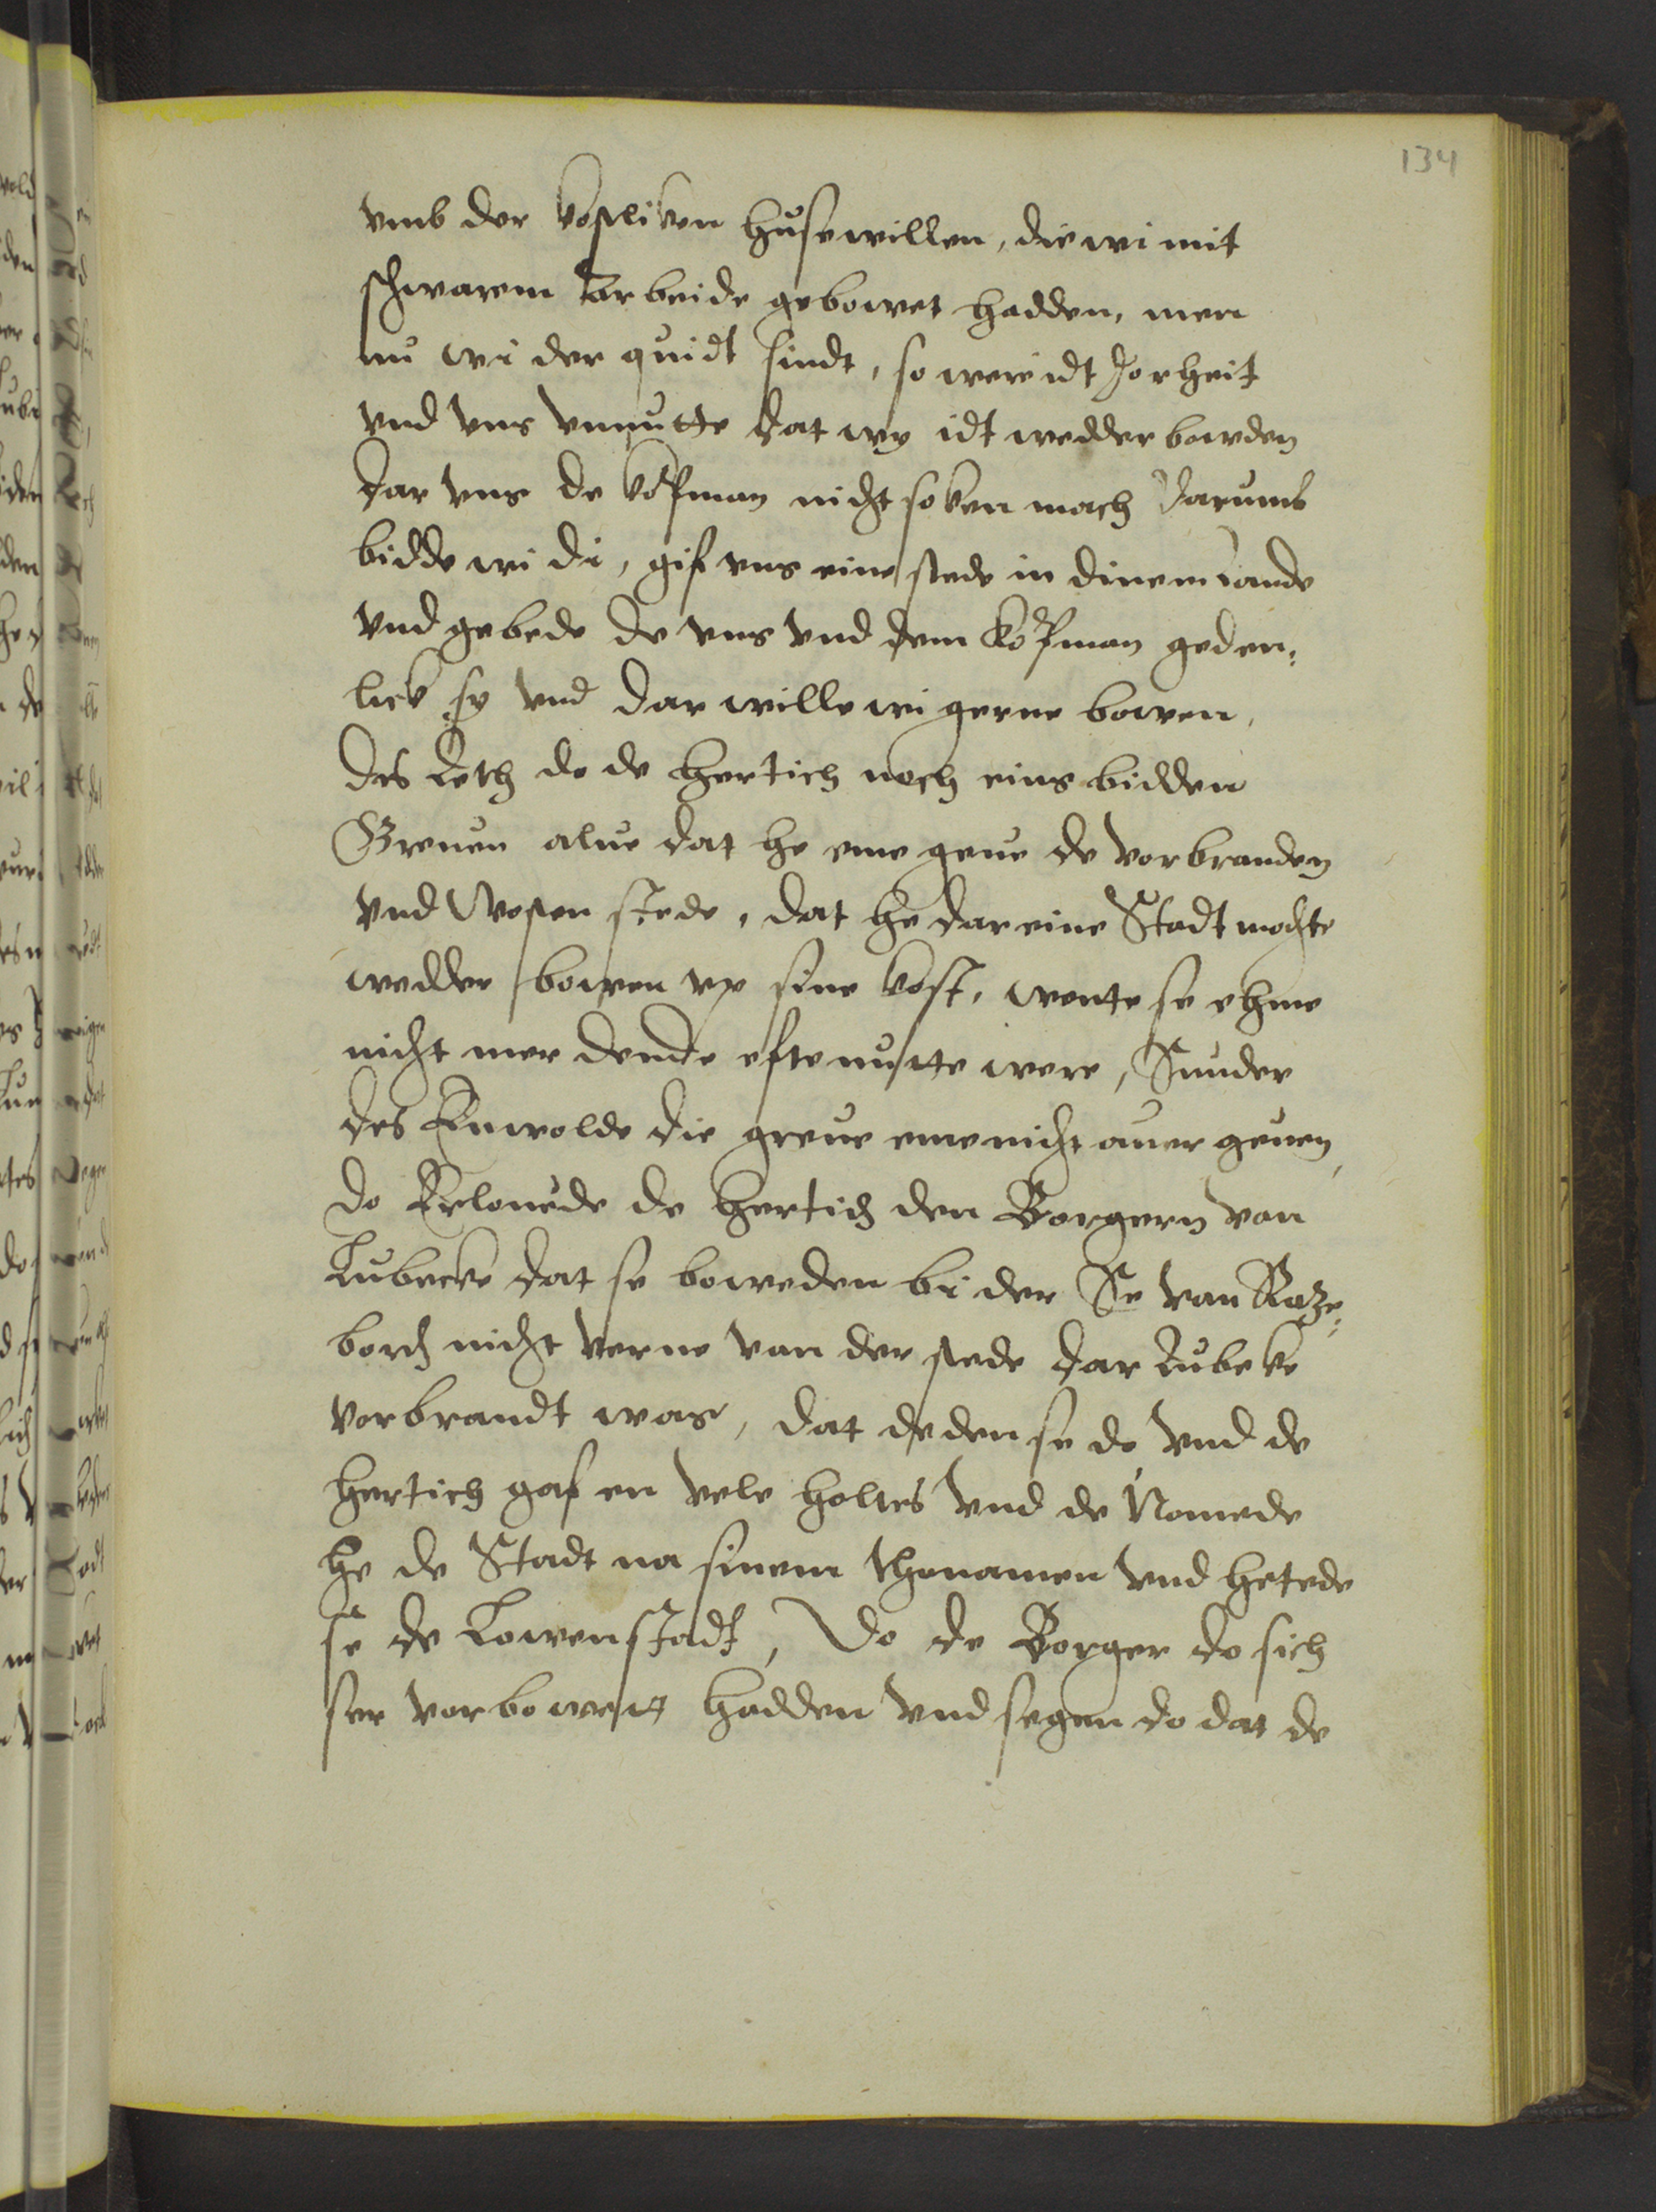 134
vmb der kosliken huse willen, die wi mit
schwarem arbeide gebowet hadden, men
nu wi der quidt sindt, so were idt Dorheit
vnd vns vnnutte dat wy idt wedder bowden
dar vns de kopman nicht soken mach Darumb
bidde wi di, gif vns eine stede in dinem lande
vnd gebede de vns vnd dem kopman geden,
lick sy vnd dar wille wi gerne bowen,
des Leth do de hertich noch eins bidden
Greuen alue dat he eme geue de vorbranden
vnd Wosten stede, dat he dar eine Stadt mochte
wedder bowen vp sine kost, wente se ehme
nicht mer dende efte nutte were, Sunder
des Enwolde die greue eme nicht auer geuen,
do Erlouede de hertich den Borgern van
Lubecke dat se boweden bi der Se van Raze,
borch nicht verne van der stede dar Lubeke
vorbrandt was, dat deden se do vnd de
hertich gaf en vele holtes vnd do Nomede
he de Stadt na sinem thonamen vnd hetede
se de Lowenstadt, Do de Borger do sich
ser vorbowett hadden vnd segen do dat de